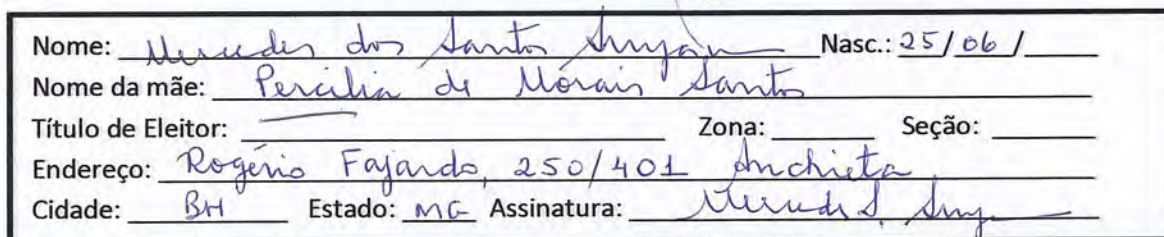 Nome: Mercedes dos Santos Nasc.: 25/06/
Nome da mãe: Percilia de Morais Santos
Título de Eleitor: Zona: Seção:
Endereço: Rogério Fajardo, 250/401 Anchieta
Cidade: BH Estado: MG Assinatura: